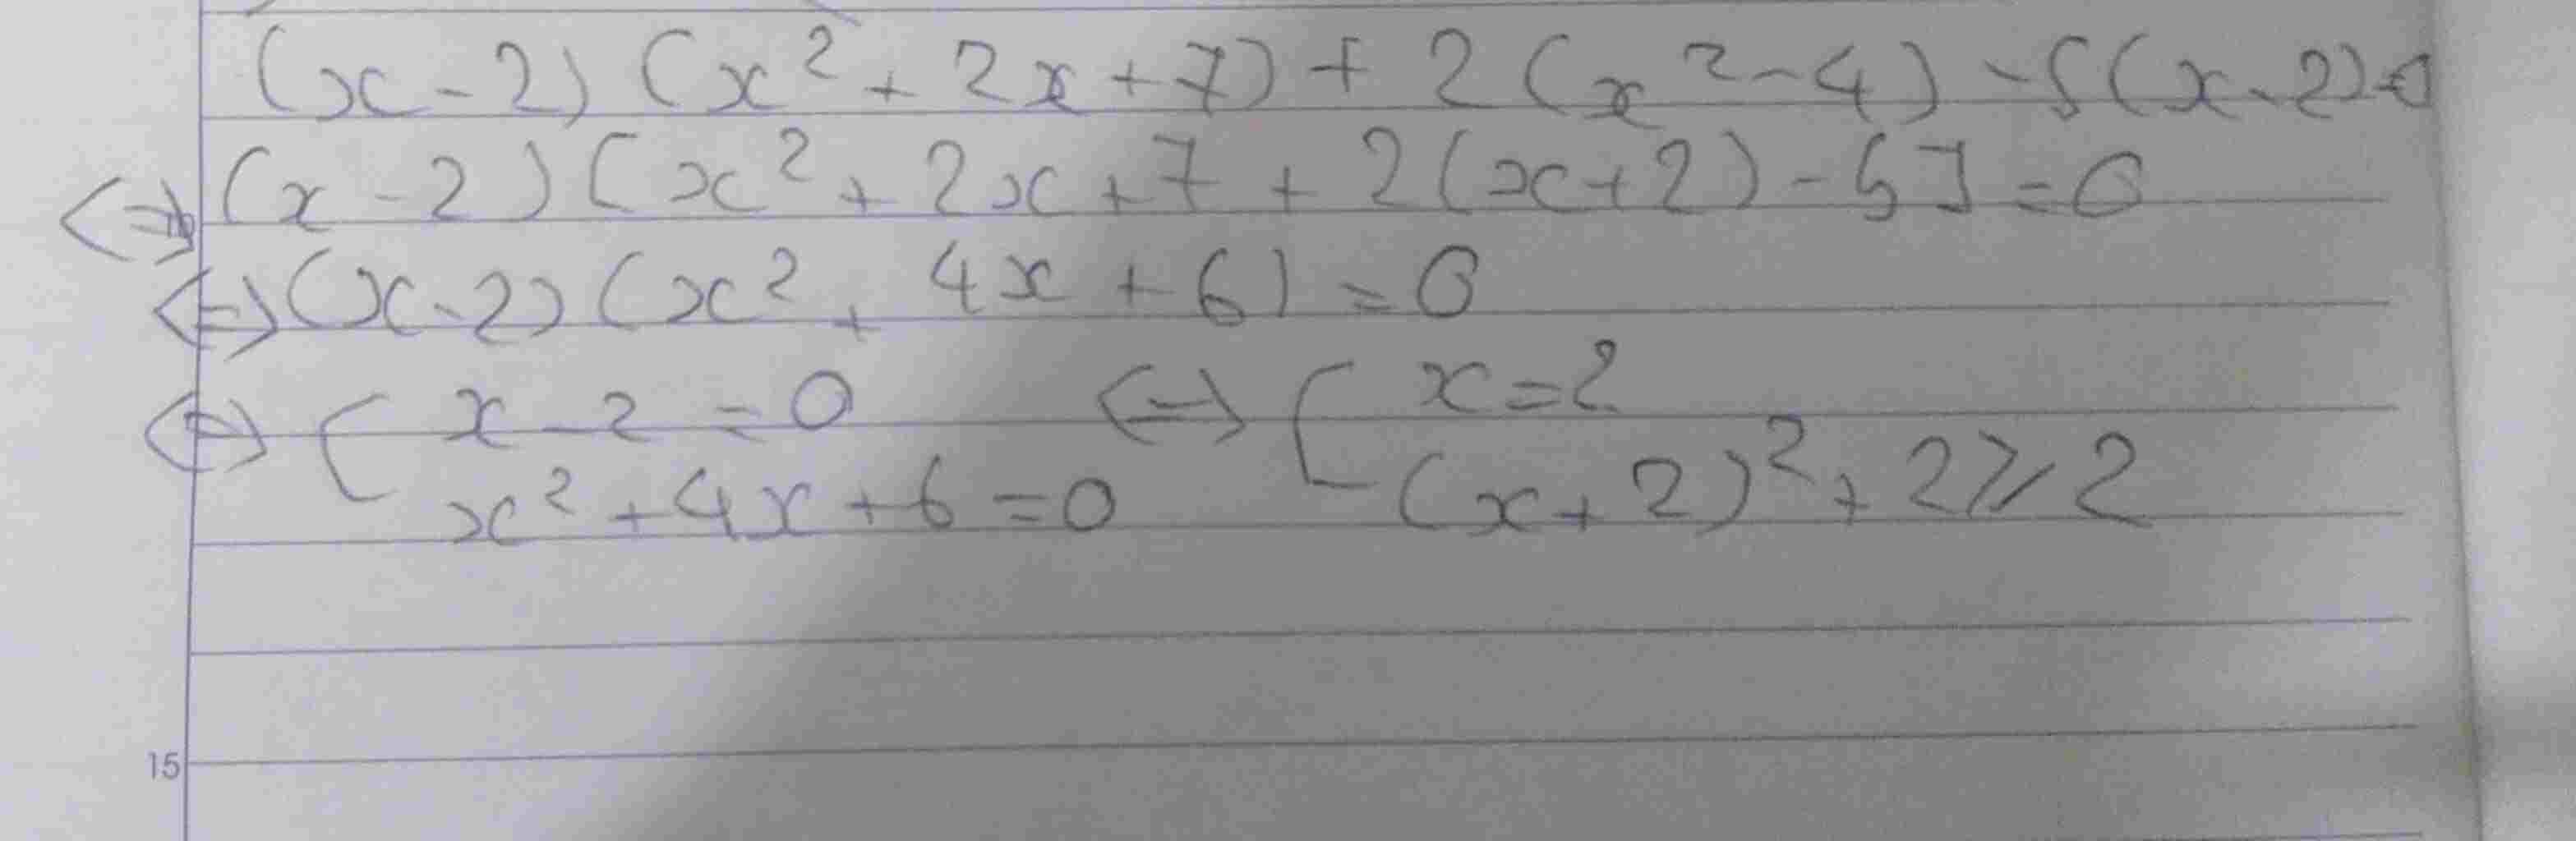 (x-2)(x²+2x+7)+2(x²-4)-5(x-2)=0
<=> (x-2)[x²+2x+7+2(x+2)-5]=0
<=> (x-2)(x²+4x+6)=0
<=> [ x-2=0 <=> [ x=2
x²+4x+6=0 (x+2)²+2⩾2
15